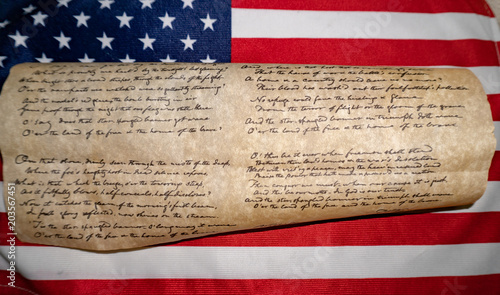 O'er the ramparts we watch'd were so gallantly streaming?
And the rocket's red glare, the bomb bursting in air,
Gave proof through the night that our flag was still there
O say, does that star-spangled banner yet wave
O'er the land of the free & the home of the brave?
On that shore, dimly seen through the mists of the deep
Where the foe's haughty host in dread silence reposes
What is that which the breeze, o'er the towering steep
As it fitfully blows, half conceals, half discloses?
Now it catches the gleam of the morning's first beam
In full glory reflected now shines on the stream
'Tis the star-spangled banner O long may it wave
O'er the land of the free & the home of the brave
That the havoc of war & the battle's confusion
A home & a country should leave us no more?
Their blood has wash'd out their foul footstep's pollution
No refuge could save the hireling & slave
From the terror of flight or the gloom of the grave
And the star-spangled banner in triumph doth wave
O'er the land of the free & the home of the brave
O! thus be it ever when freemen shall stand
Between their lov'd home & the war's desolation
Praise the power that hath made & preserv'd us a nation
Then conquer we must, when our cause it is just
And the star-spangled banner in triumph shall wave
O'er the land of the free & the home of the brave
203567451